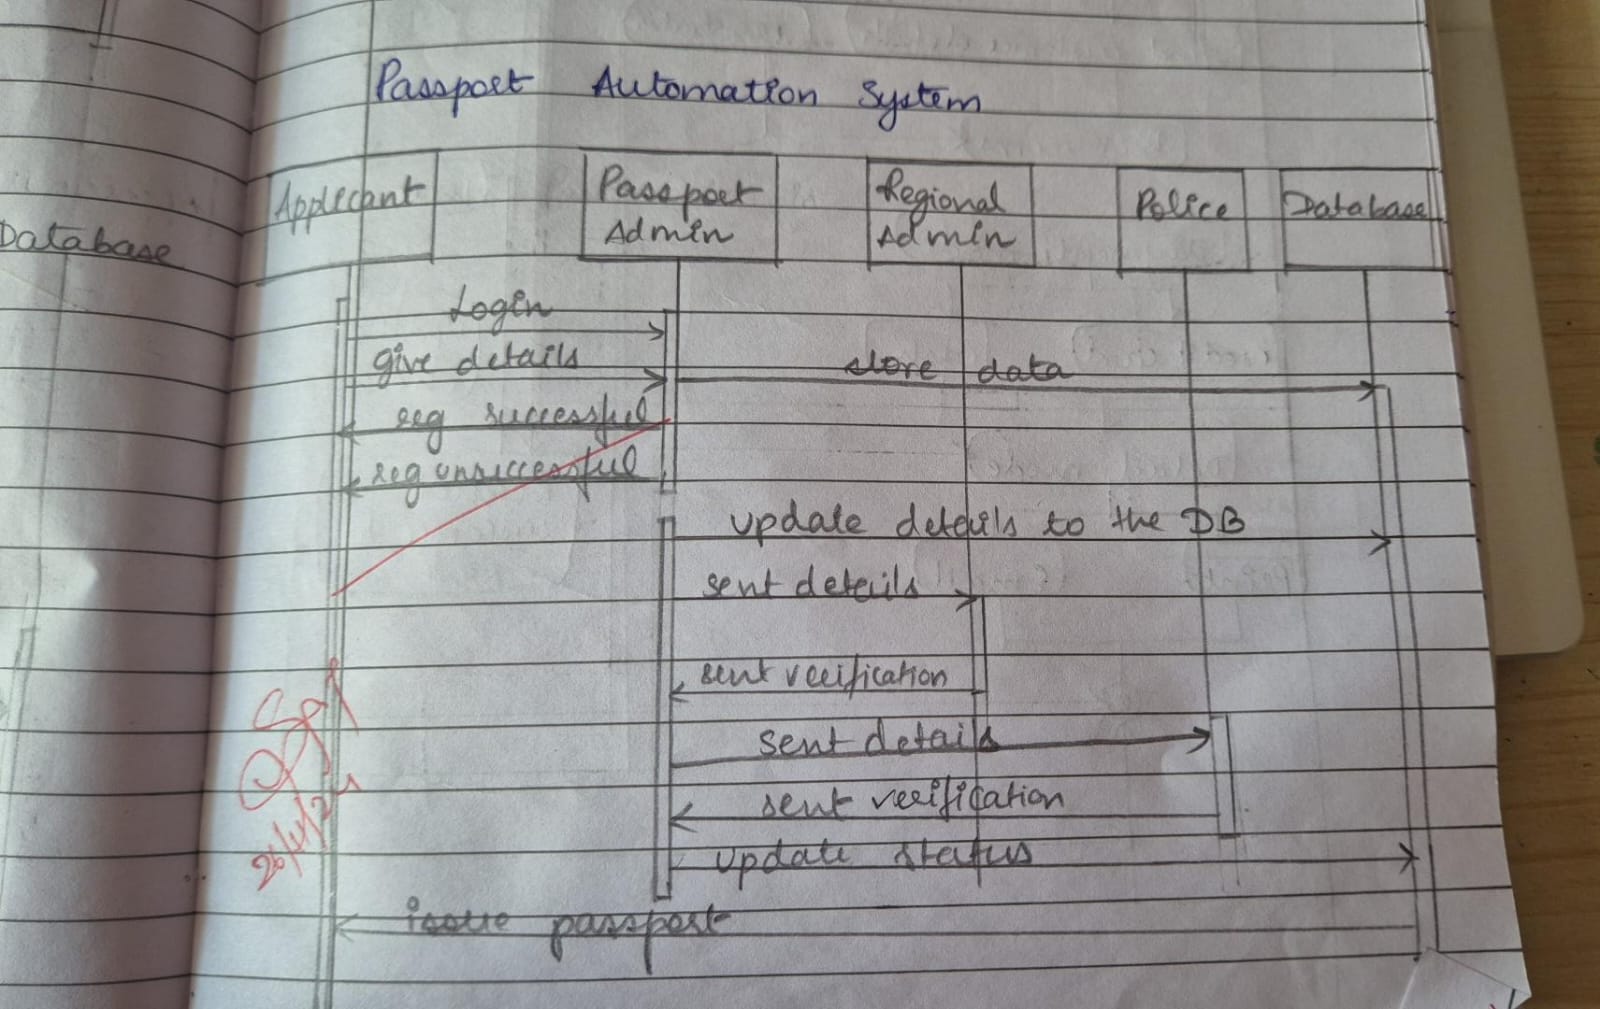 Passport Automation System
Applicant
Passport Admin
Regional Admin
Police
Database
Database
Login
give details
store data
reg successful
reg unsuccessful
update details to the DB
sent details
sent verification
sent details
sent verification
update status
issue passport